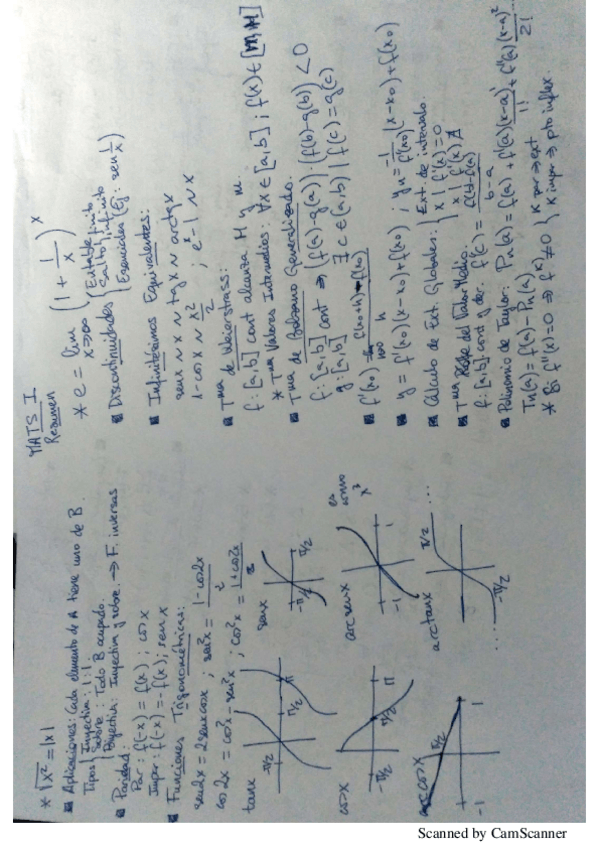 MATS I
Resumen
* √x² = |x|
Aplicaciones: Cada elemento de A tiene uno de B.
Tipos { Inyectiva: 1:1
Sobre: Todo B ocupado.
Biyectiva: Inyectiva y sobre. → F. inversas
Paridad:
Par: f(-x) = f(x); cosx
Impar: f(-x) = -f(x); senx
Funciones Trigonométricas:
sen2x = 2senxcosx ; sen²x = (1-cos2x)/2
cos2x = cos²x - sen²x ; cos²x = (1+cos2x)/2
tanx
-π/2
π/2
π
senx
-π/2
π/2
cosx
-π/2
π/2
π
arcsenx
-1
1
es como x³
arccosx
π/2
-1
1
arctanx
π/2
-π/2
* e = lim x→∞ (1 + 1/x)^x
Discontinuidades { Evitable: finito
Salto: finito
Esenciales (Ej: sen 1/x)
Infinitésimos Equivalentes:
senx ~ x ~ tgx ~ arctgx
1-cosx ~ x²/2 ; e^x - 1 ~ x
Tma de Weierstrass:
f: [a,b] cont alcanza M y m
* Tma Valores Intermedios: ∀x ∈ [a,b] ; f(x) ∈ [m,M]
Tma de Bolzano Generalizado:
f: [a,b] cont ⇒ (f(a)-g(a))·(f(b)-g(b)) < 0
g: [a,b] ∃ c ∈ (a,b) | f(c) = g(c)
f'(x₀) = lim h→0 (f(x₀+h)-f(x₀))/h
y = f'(x₀)(x-x₀)+f(x₀) ; yn = -1/f'(x₀) (x-x₀)+f(x₀)
Cálculo de Ext. Globales: { Ext. de intervalo.
x | f'(x) = 0
x | f'(x) ∄
Tma del Valor Medio:
f: [a,b] cont y der. f'(c) = (f(b)-f(a))/(b-a)
Polinomio de Taylor: Pn(x) = f(a) + f'(a)(x-a)/1! + f''(a)(x-a)²/2! ...
Tn(a) = f(a) - Pn(a)
* Si f''(x)=0 ⇒ f^(k) ≠ 0 { k par ⇒ ext
k impar ⇒ pto inflex.
Scanned by CamScanner